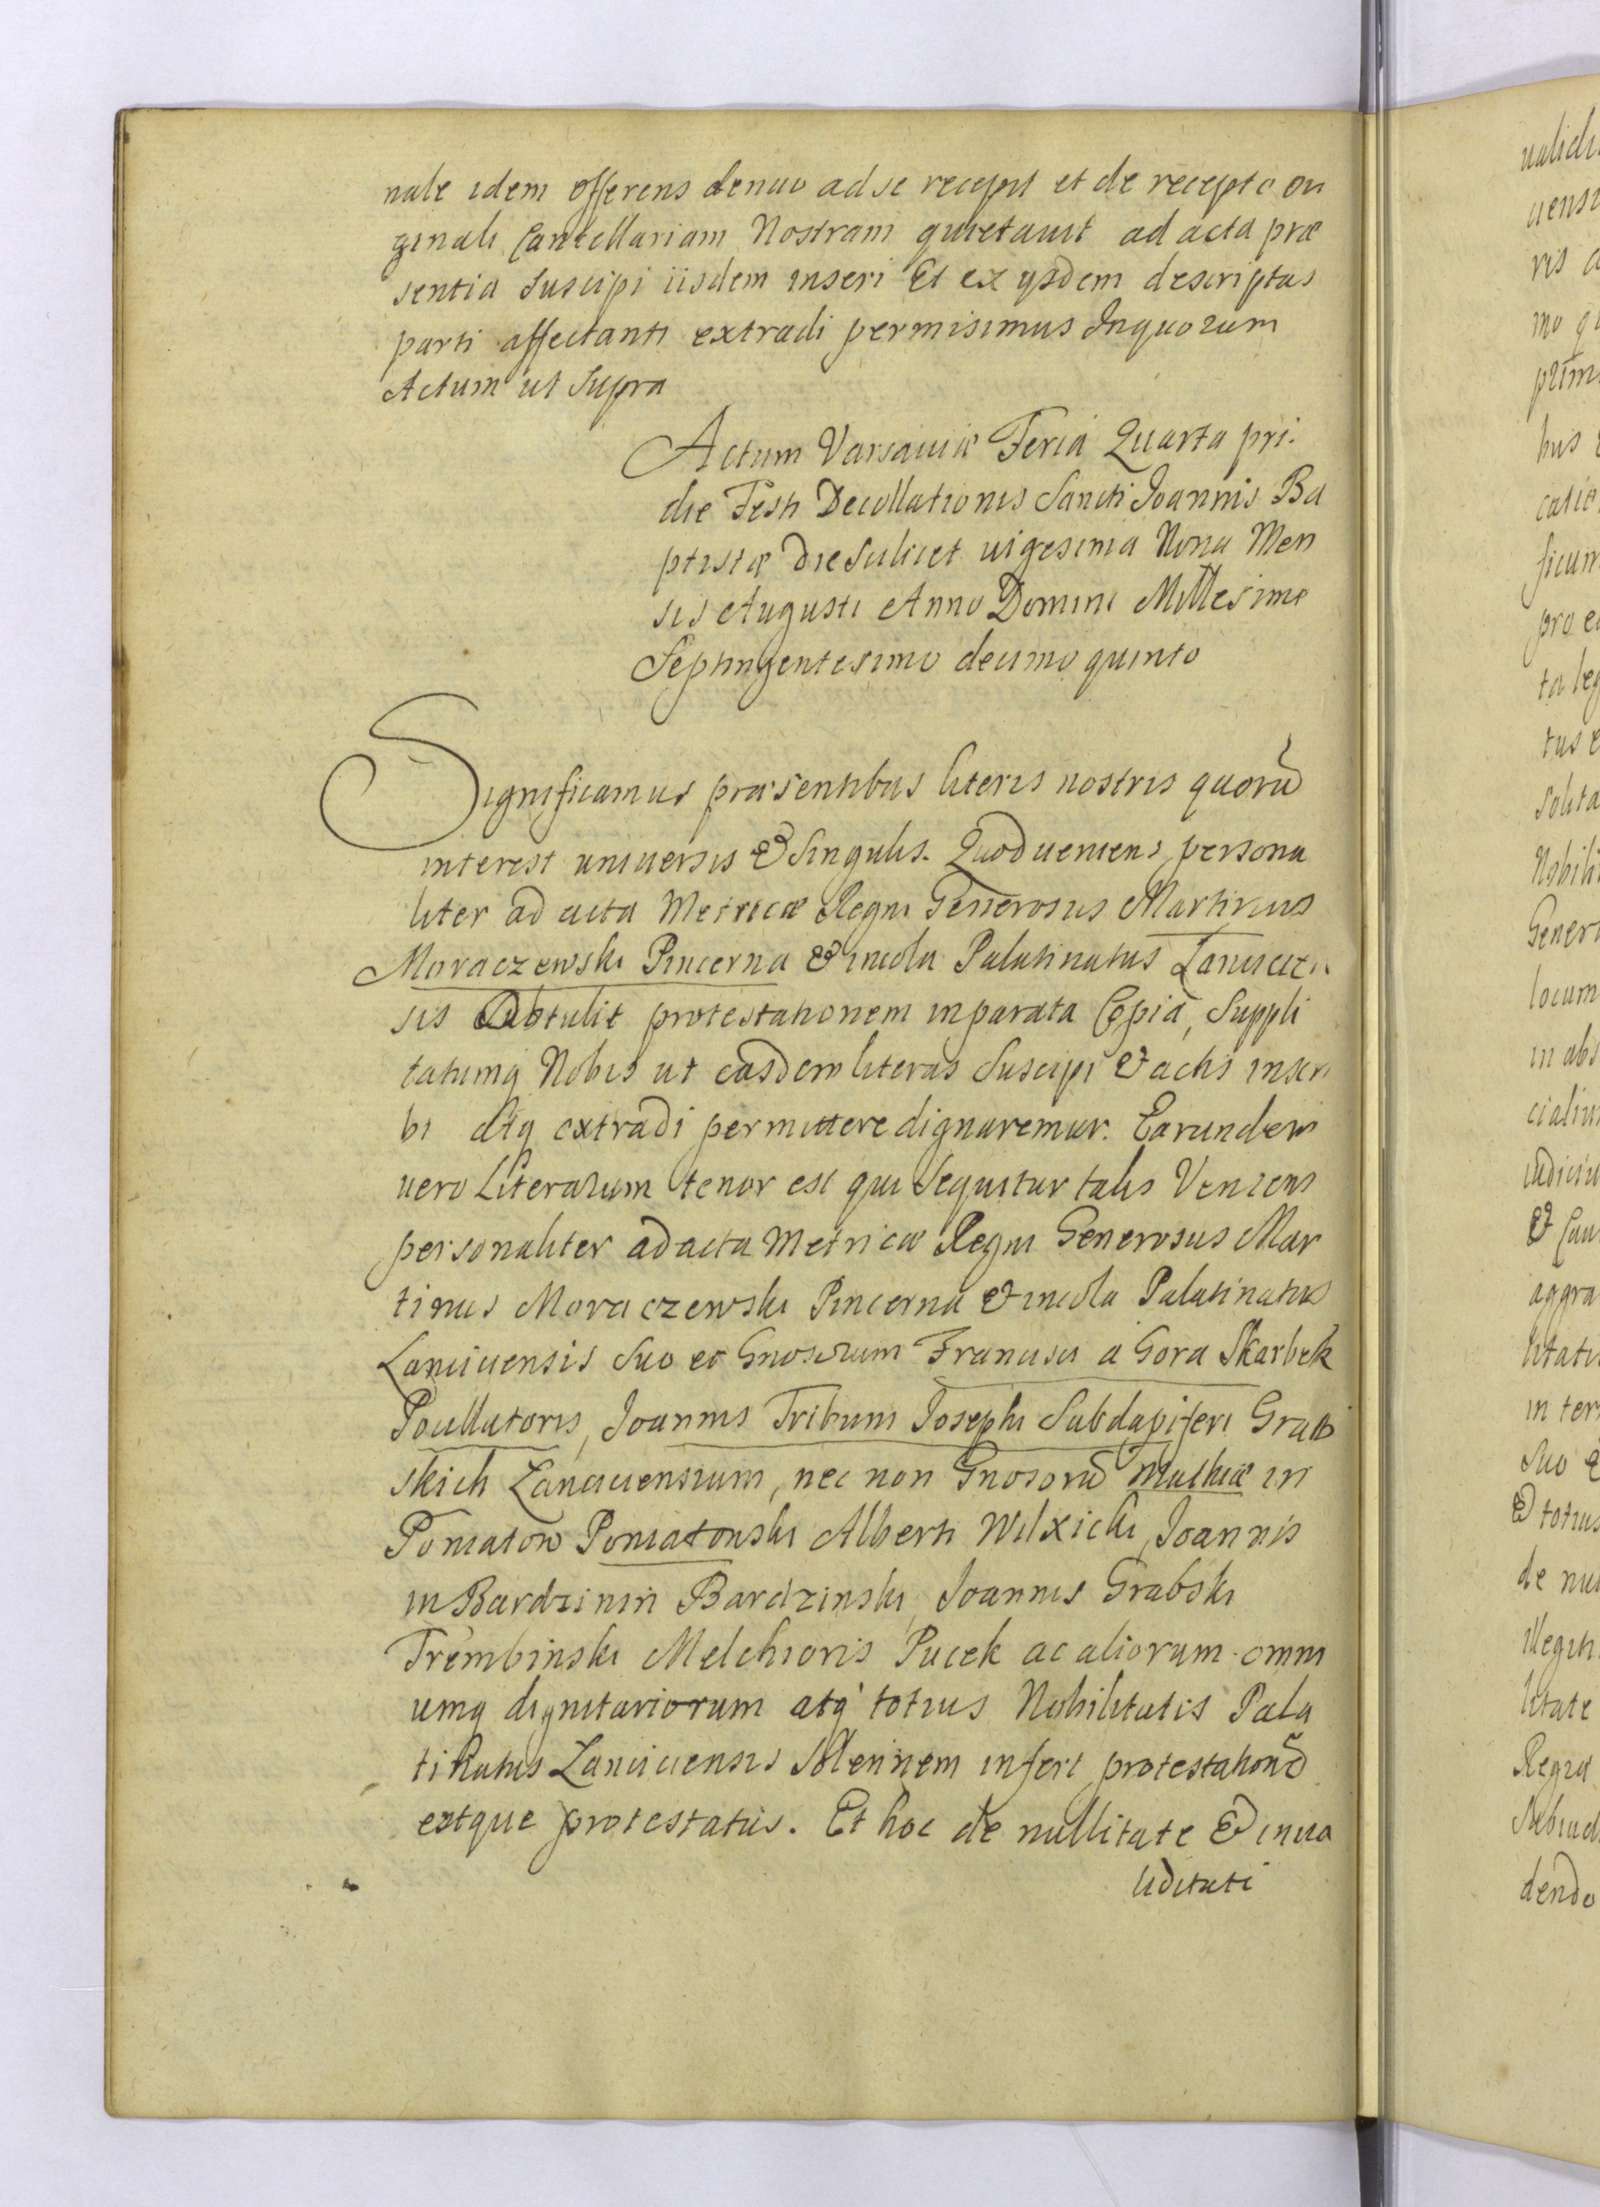 nale idem offerens denuo ad se recepit et de recepto ori
ginali Cancellariam Nostram quietauit ad acta præ
sentia suscipi iisdem inseri Et ex ysdem descriptas
parti affectanti extradi permisimus Inquorum
Actum ut Supra
Actum Varsauiæ Feria Quarta pri:
die Festi Decollationis Sancti Joannis Ba
ptistæ Die Scilicet uigesima Nona Men
sis Augusti Anno Domini Millesimo
Septingentesimo decimo quinto
Significamus præsentibus literis nostris quorũ
interest uniuersis & Singulis. Quod ueniens persona
liter ad acta Metricæ Regni Generosus Martinus
Moraczewski Pincerna & incola Palatinatus Lancicien
sis Obtulit protestationem in parata Copia, Suppli
tatumq Nobis ut easdem literas Suscipi & actis inscri
bi atq extradi permittere dignaremur. Earundem
uero Literarum tenor est qui Sequitur talis Veniens
personaliter ad acta Metricæ Regni Generosus Mar
tinus Moraczewski Pincerna & incola Palatinatus
Lanciciensis Suo et Gnosorum Francisci a Gora Skarbek
Pocillatoris, Joannis Tribuni Josephi Subdapiferi Grab
skich Lanciciensium, nec non Gnosorũ Mathiæ in
Poniatow Poniatowski Alberti Wilxicki, Joannis
in Bardzinin Bardzinski, Joannis Grabski
Trembinski Melchioris Pucek ac aliorum omni
umq dignitariorum atq totius Nobilitatis Pala
tinatus Lanciciensis Solennem infert protestationẽ
estque protestatus. Et hoc de nullitate & inua
liditati
ualidi
uensi
ris a
mo qu
prim
bus
catio
ficum
pro e
ta leg
tus e
solita
Nobili
Gener
locum
in abs
cialiu
iudiciu
& Cau
aggra
litati
in ter
Suo &
& totius
de nul
illegit
litate
Regia
Subiud
dendo